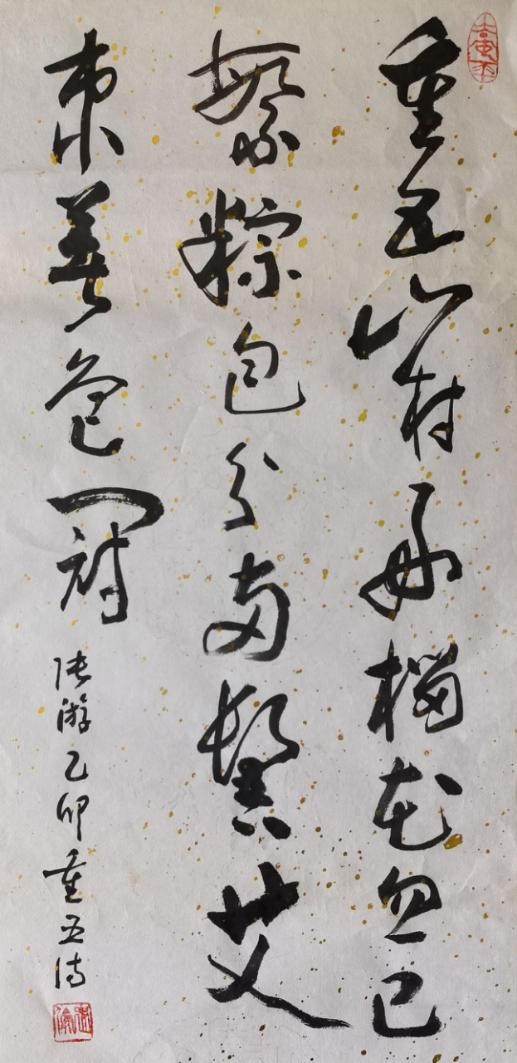 重五山村好榴花忽已
繁粽包分两髻艾
束著危冠
陆游乙卯重五诗